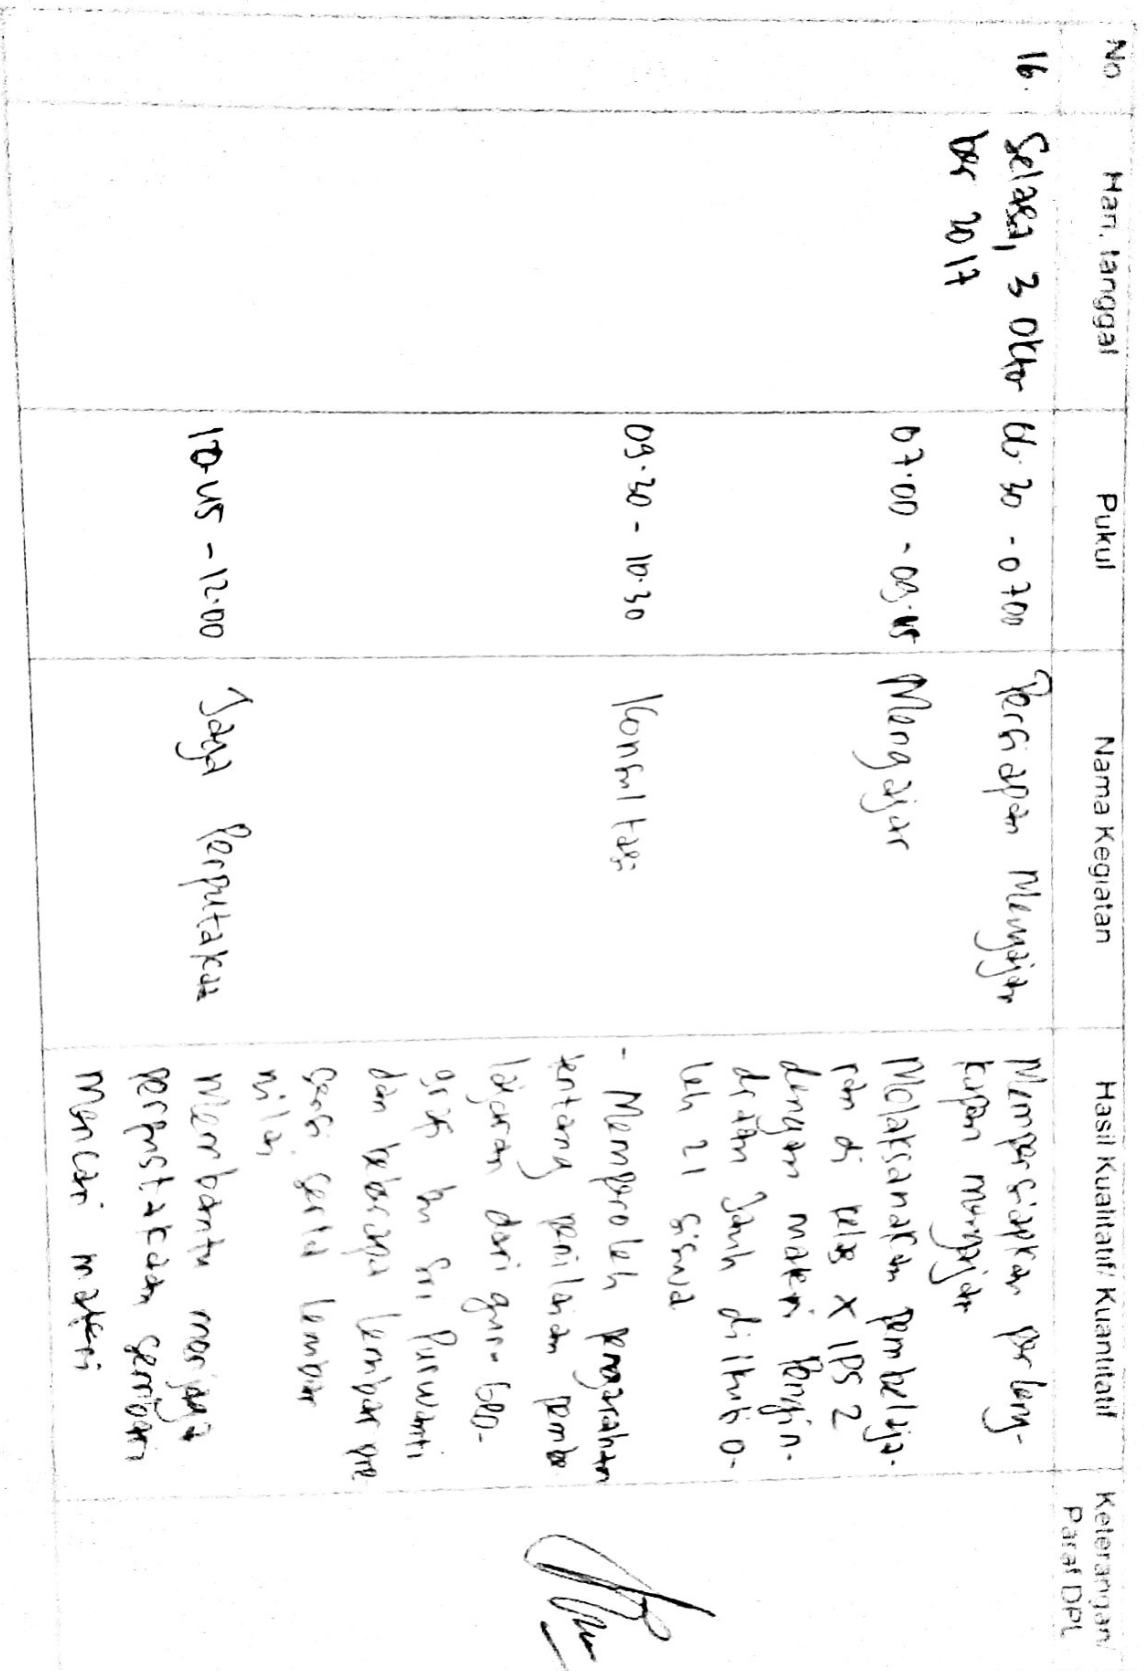 No Hari, tanggal Pukul Nama Kegiatan Hasil Kualitatif/ Kuantitatif Keterangan/
Paraf DPL
16. Selasa, 3 Okto
ber 2017
06.30 - 0700 Persiapan Mengajar Mempersiapkan perleng-
kapan mengajar
07.00 - 09.45 Mengajar Melaksanakan pembelaja-
ran di kelas X IPS 2
dengan materi Pengin-
draan Jauh diikuti o-
leh 21 siswa
09.30 - 10.30 Konsultasi - Memperoleh pengarahan
tentang penilaian pembe
lajaran dari guru Geo-
grafi bu Sri Purwanti
dan beberapa lembar pre
sensi serta lembar
nilai
10.45 - 12.00 Jaga Perputakaa Membantu menjaga
perpustakaan sembari
mencari materi